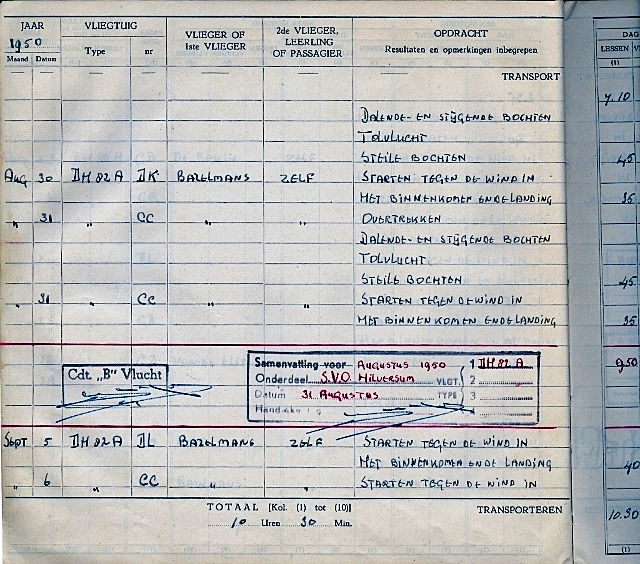 JAAR VLIEGTUIG VLIEGER OF 1ste VLIEGER 2de VLIEGER, LEERLING OF PASSAGIER OPDRACHT DAG
1950 Type nr Resultaten en opmerkingen inbegrepen LESSEN
Maand Datum (1)
TRANSPORT 7.10
DALENDE- EN STIJGENDE BOCHTEN
TOLVLUCHT
STEILE BOCHTEN 45
AUG 30 DH 82 A DK BAZELMANS ZELF STARTEN TEGEN DE WIND IN
MET BINNENKOMEN EN DE LANDING 35
" 31 " CC " " OVERTREKKEN
DALENDE- EN STIJGENDE BOCHTEN
TOLVLUCHT
STEILE BOCHTEN 45
" 31 " CC " " STARTEN TEGEN DE WIND IN
MET BINNENKOMEN EN DE LANDING 35
Samenvatting voor AUGUSTUS 1950 1 DH 82 A 9.50
Cdt. „B" Vlucht Onderdeel S.V.O. HILVERSUM VLGT. 2
Datum 31 AUGUSTUS TYPE 3
SEPT 5 DH 82 A DL BAZELMANS ZELF STARTEN TEGEN DE WIND IN
MET BINNENKOMEN EN DE LANDING 40
" 6 " CC STARTEN TEGEN DE WIND IN
TOTAAL [Kol. (1) tot (10)] TRANSPORTEREN 10.30
10 Uren 30 Min.
(1)